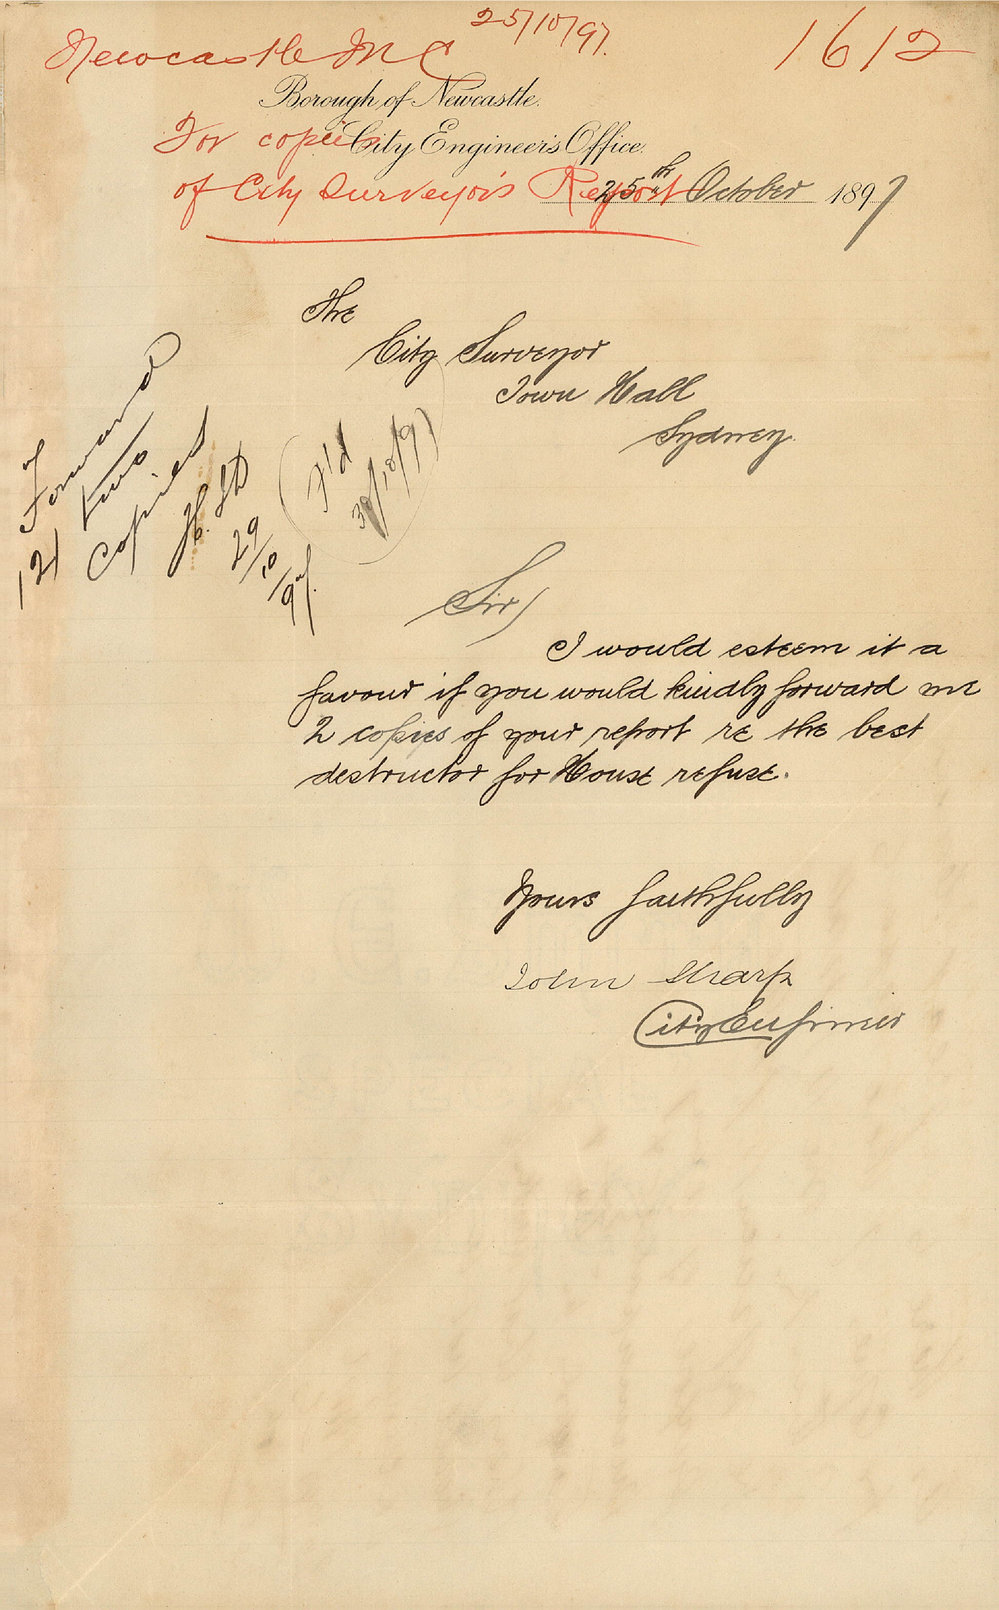 25/10/97.
Newcastle M C
1612
Borough of Newcastle.
For copies
City Engineer's Office.
of City Surveyor's Report
25th October 1897
The
City Surveyor
Town Hall
Sydney.
Forward
two
copies
29/10/97.
F'd
30/10/97
Sir,
I would esteem it a
favour if you would kindly forward me
2 copies of your report re the best
destructor for House refuse.
Yours faithfully
John Sharp
City Engineer